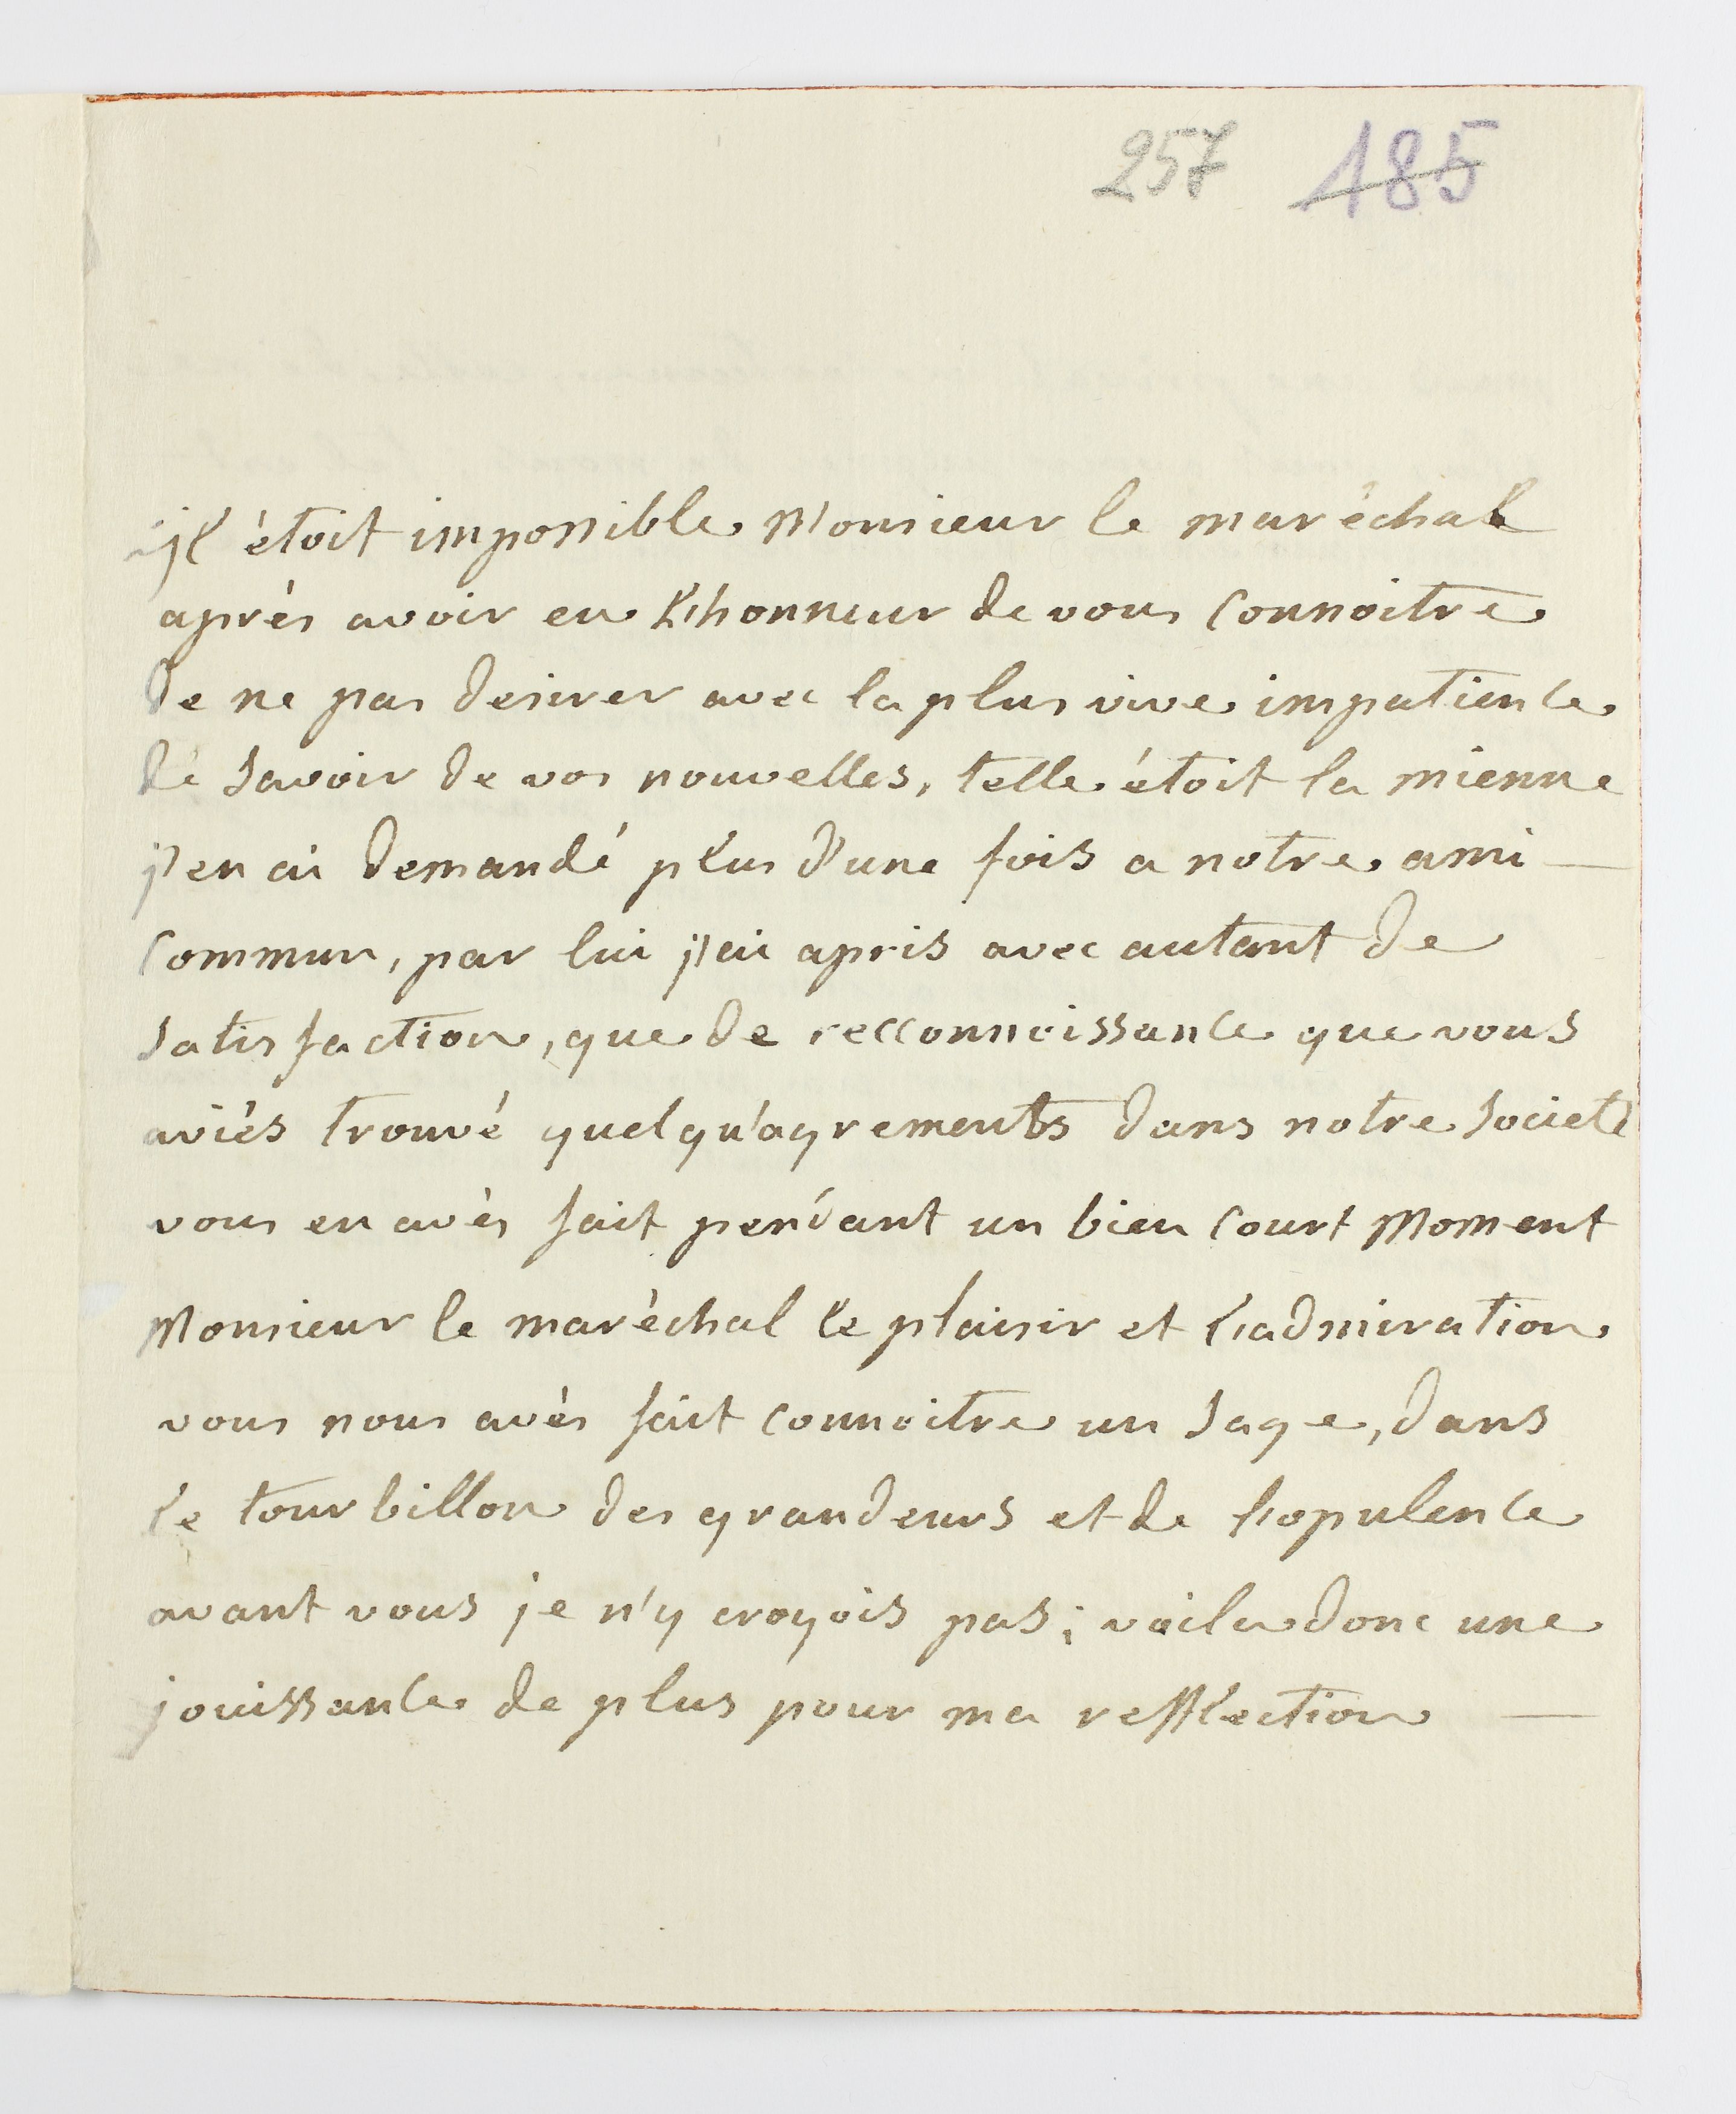 257 185
il étoit impossible Monsieur le maréchal
après avoir eu l'honneur de vous connoitre
de ne pas desirer avec la plus vive impatience
de savoir de vos nouvelles, telle étoit la mienne
j'en ai demandé plus d'une fois a notre ami —
commun, par lui j'ai apris avec autant de
satisfaction, que de reconnoissance que vous
aviés trouvé quelqu'agrements dans notre societé
vous en avès fait pendant un bien court moment
Monsieur le maréchal le plaisir et l'admiration
vous nous avès fait connoitre un sage, dans
le tourbillon des grandeurs et de l'opulence
avant vous je n'y croyois pas; voila donc une
jouissance de plus pour ma refflection —